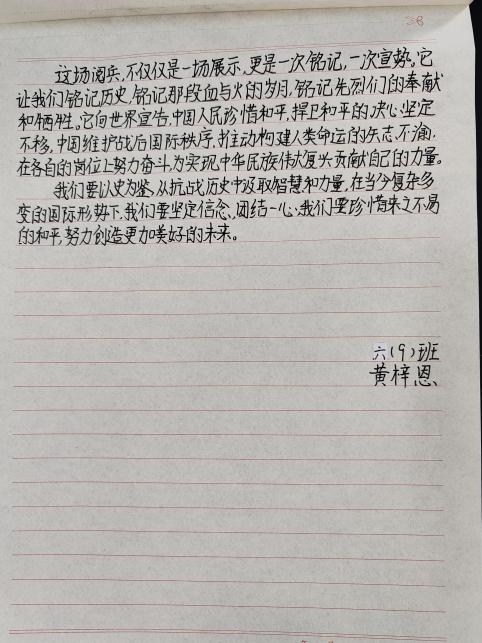 这场阅兵,不仅仅是一场展示,更是一次铭记,一次宣势。它
让我们铭记历史,铭记那段血与火的岁月,铭记先烈们的奉献
和牺牲。它向世界宣告,中国人民珍惜和平,捍卫和平的决心坚定
不移,中国维护战后国际秩序,推动构建人类命运的矢志不渝,
在各自的岗位上努力奋斗,为实现中华民族伟大复兴贡献自己的力量。
我们要以史为鉴,从抗战历史中汲取智慧和力量,在当今复杂多
变的国际形势下,我们要坚定信念,团结一心,我们要珍惜来之不易
的和平,努力创造更加美好的未来。
六(9)班
黄梓恩